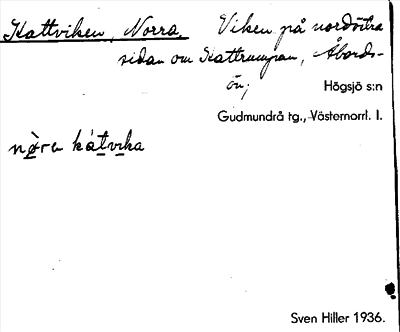 Kattviken, Norra. Viken på nordöstra
sidan om Kattrumpan, Åbords-
ön;
Högsjö s:n
Gudmundrå tg., Västernorrl. l.
nọ̀ra kátvika
Sven Hiller 1936.